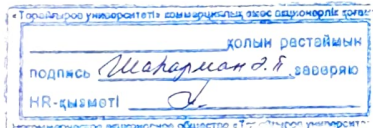 «Торайғыров университеті» коммерциялық емес акционерлік қоғам
қолын растаймын
подпись Шакарман Э.П. заверяю
HR-қызметі
акционерное общество «Торайғыров университет